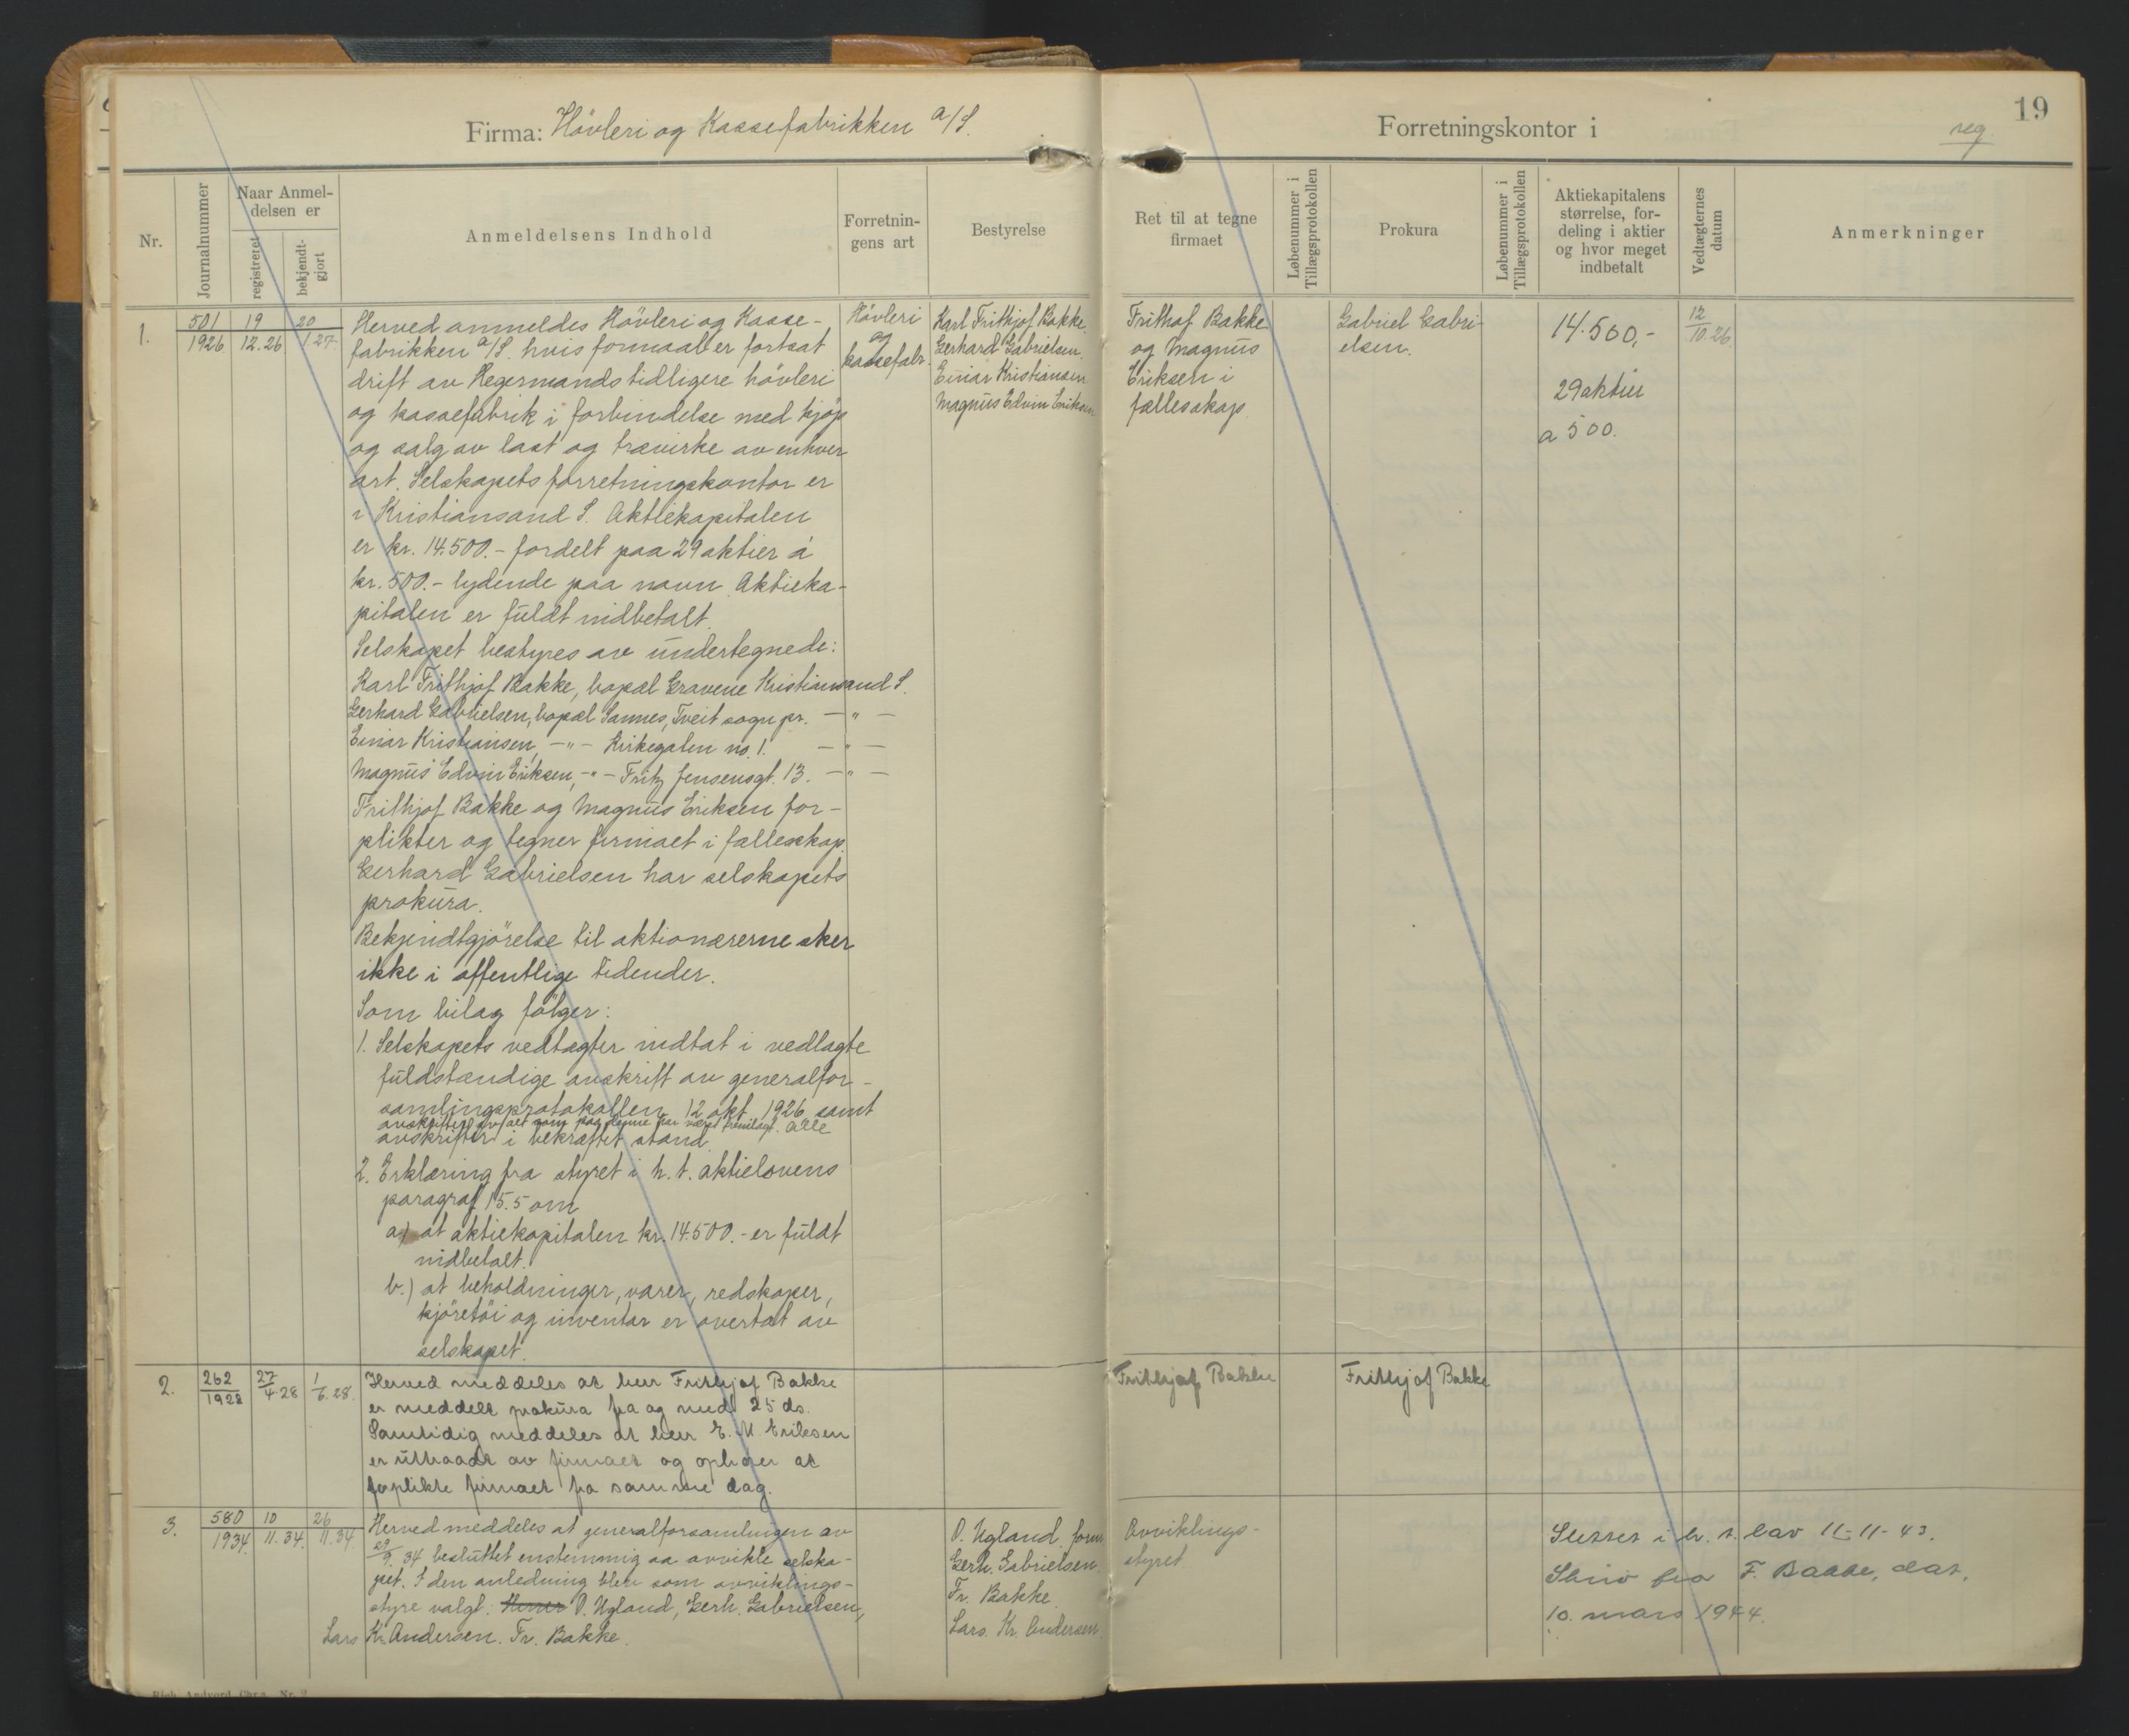 Firma: Hövleri og Kassefabrikken a/S.
Forretningskontor i
19
reg.
Nr.
Journalnummer
Naar Anmel-
delsen er
registreret
bekjendt-
gjort
Anmeldelsens Indhold
Forretnin-
gens art
Bestyrelse
Ret til at tegne
firmaet
Løbenummer i
Tillægsprotokollen
Prokura
Løbenummer i
Tillægsprotokollen
Aktiekapitalens
størrelse, for-
deling i aktier
og hvor meget
indbetalt
Vedtægternes
datum
Anmerkninger
1.
501
1926
19
12.26
20
1.27
Herved anmeldes Hövleri og Kasse-
fabrikken a/S. hvis formaal er fortsat
drift av Hegermands tidligere hövleri
og kassefabrik i forbindelse med kjöp
og salg av last og trævirke av enhver
art. Selskapets forretningskontor er
i Kristiansand S. Aktiekapitalen
er kr. 14.500.- fordelt paa 29 aktier á
kr. 500.- lydende paa navn. Aktieka-
pitalen er fuldt indbetalt.
Selskapet bestyres av undertegnede:
Karl Frithjof Bakke, bopæl Gravene Kristiansand S.
Gerhard Gabrielsen, bopæl Sannes, Tveit sogn pr. — " —
Einar Kristiansen, — " — Kirkegaten no. 1. — " —
Magnus Edvin Eriksen, - " - Fritz Jensensgt. 13. — " —
Frithjof Bakke og Magnus Eriksen for-
plikter og tegner firmaet i fælleskap.
Gerhard Gabrielsen har selskapets
prokura.
Bekjendtgjörelse til aktionærerne sker
ikke i offentlige tidender.
Som bilag fölger:
1. Selskapets vedtægter indtat i vedlagte
fuldstændige avskrift av generalfor-
samlingsprotokollen 12 okt. 1926 samt
avskrifter av alt som paa denne har været fremlagt. Alle
avskrifter i bekræftet stand.
2. Erklæring fra styret i h. t. aktielovens
paragraf 15.5 om
a) at aktiekapitalen kr. 14.500.- er fuldt
indbetalt.
b.) at beholdninger, varer, redskaper,
kjöretöi og inventar er overtat av
selskapet.
Hövleri
og
kassefabr.
Karl Frithjof Bakke.
Gerhard Gabrielsen.
Einar Kristiansen
Magnus Edvin Eriksen
Frithof Bakke
og Magnus
Eriksen i
fællesskap.
Gabriel Gabri-
elsen.
14.500,-
29 aktier
a 500.
12
10.26
2.
262
1928
27
4.28
1
6.28.
Herved meddeles at herr Frithjof Bakke
er meddelt prokura fra og med 25 ds.
Samtidig meddeles at herr E. M. Eriksen
er uttraadt av firmaet og ophører at
forplikte firmaet fra samme dag.
Frithjof Bakke
Frithjof Bakke
3.
580
1934.
10
11.34.
26
11.34
Herved meddeles at generalforsamlingen av
29/9. 34 besluttet enstemmig aa avvikle selska-
pet. I den anledning blev som avviklings-
styre valgt: Herrer O. Ugland, Gerh. Gabrielsen,
Lars Kr. Andersen. Fr. Bakke.
O. Ugland. form
Gerh. Gabrielsen.
Fr. Bakke.
Lars. Kr. Andersen.
Avviklings-
styret.
Slettet i h. t. lov 11-11-43.
Skriv fra F. Bakke, dat.
10. mars 1944.